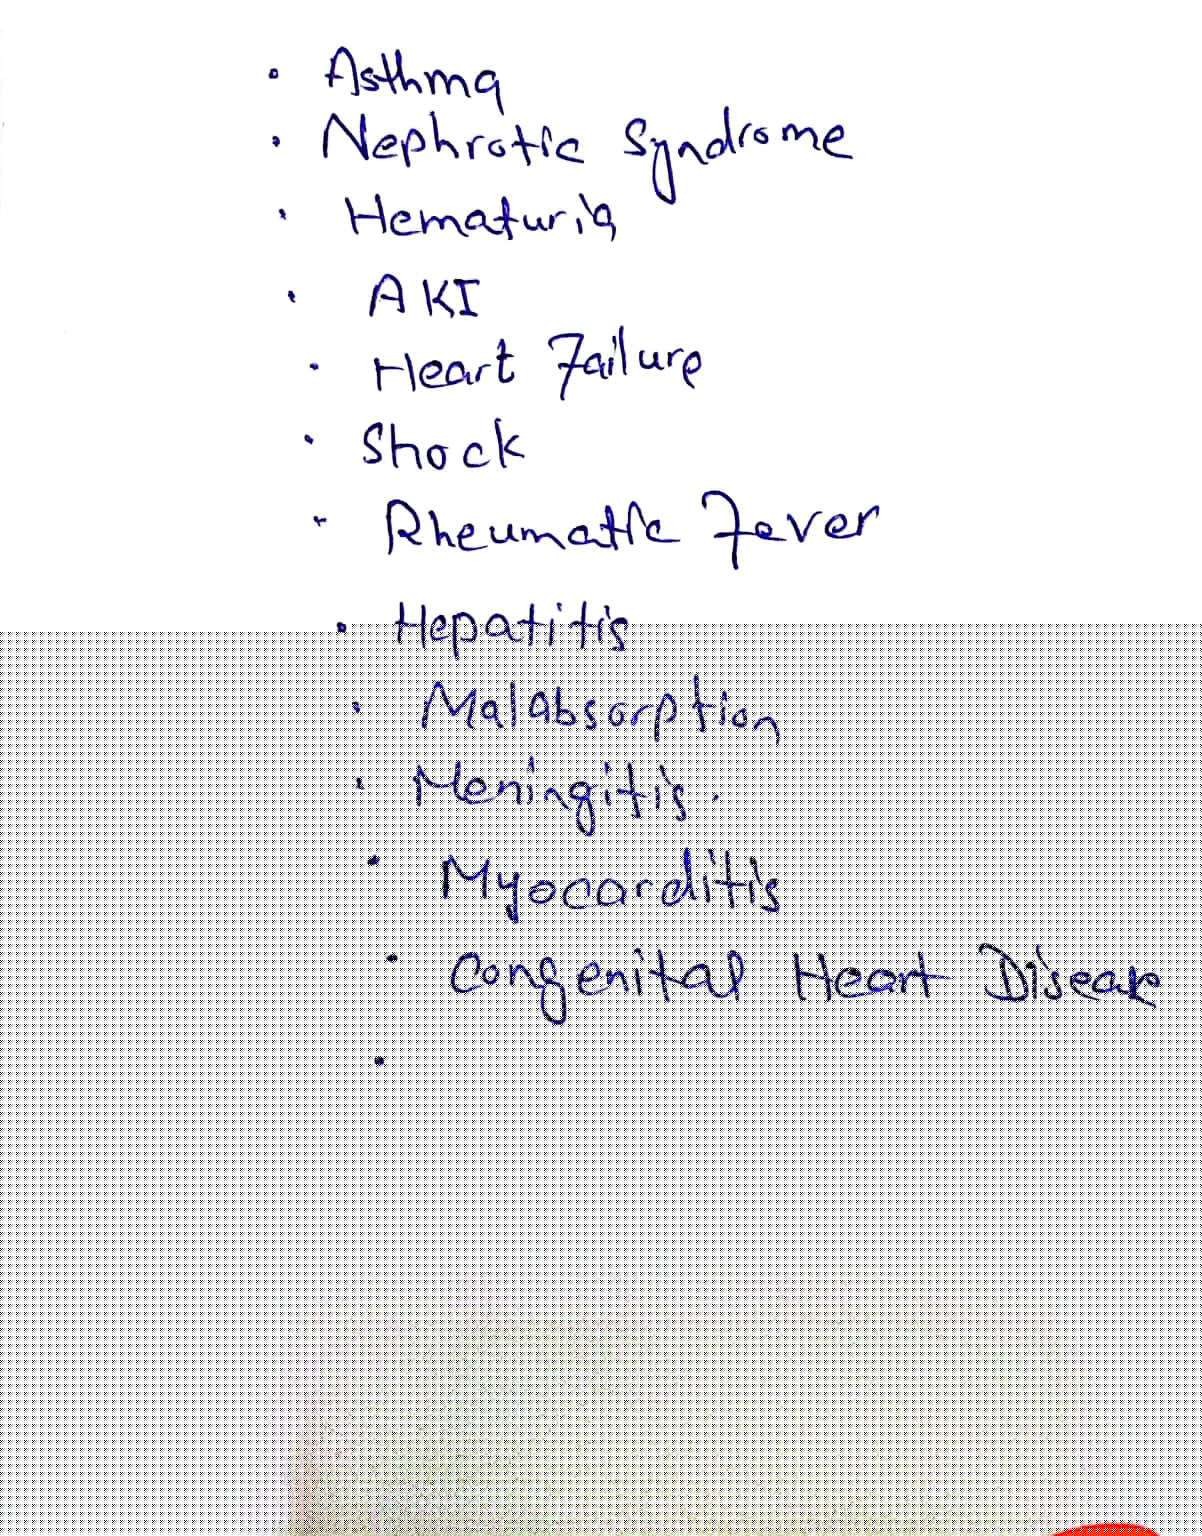 • Asthma
• Nephrotic Syndrome
• Hematuria
• AKI
• Heart Failure
• Shock
• Rheumatic Fever
• Hepatitis
• Malabsorption
• Meningitis.
• Myocarditis
• Congenital Heart Disease
•